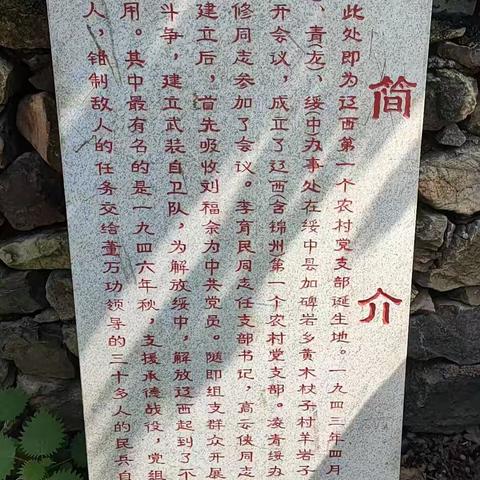 简介
此处即为辽西第一个农村党支部诞生地。一九四三年四月
、青(龙)、绥中办事处在绥中县加碑岩乡黄木杖子村羊岩子
开会议，成立了辽西(含锦州第一个农村党支部。凌青绥办
修同志参加了会议。李育民同志任支部书记，高云侠同志
建立后，首先吸收刘福余为中共党员。随即组支群众开展
斗争，建立武装自卫队，为解放绥中，解放辽西起到了不
用。其中最有名的是一九四六年秋，支援承德战役，党组
人，钳制敌人的任务交给董万功领导的三十多人的民兵自